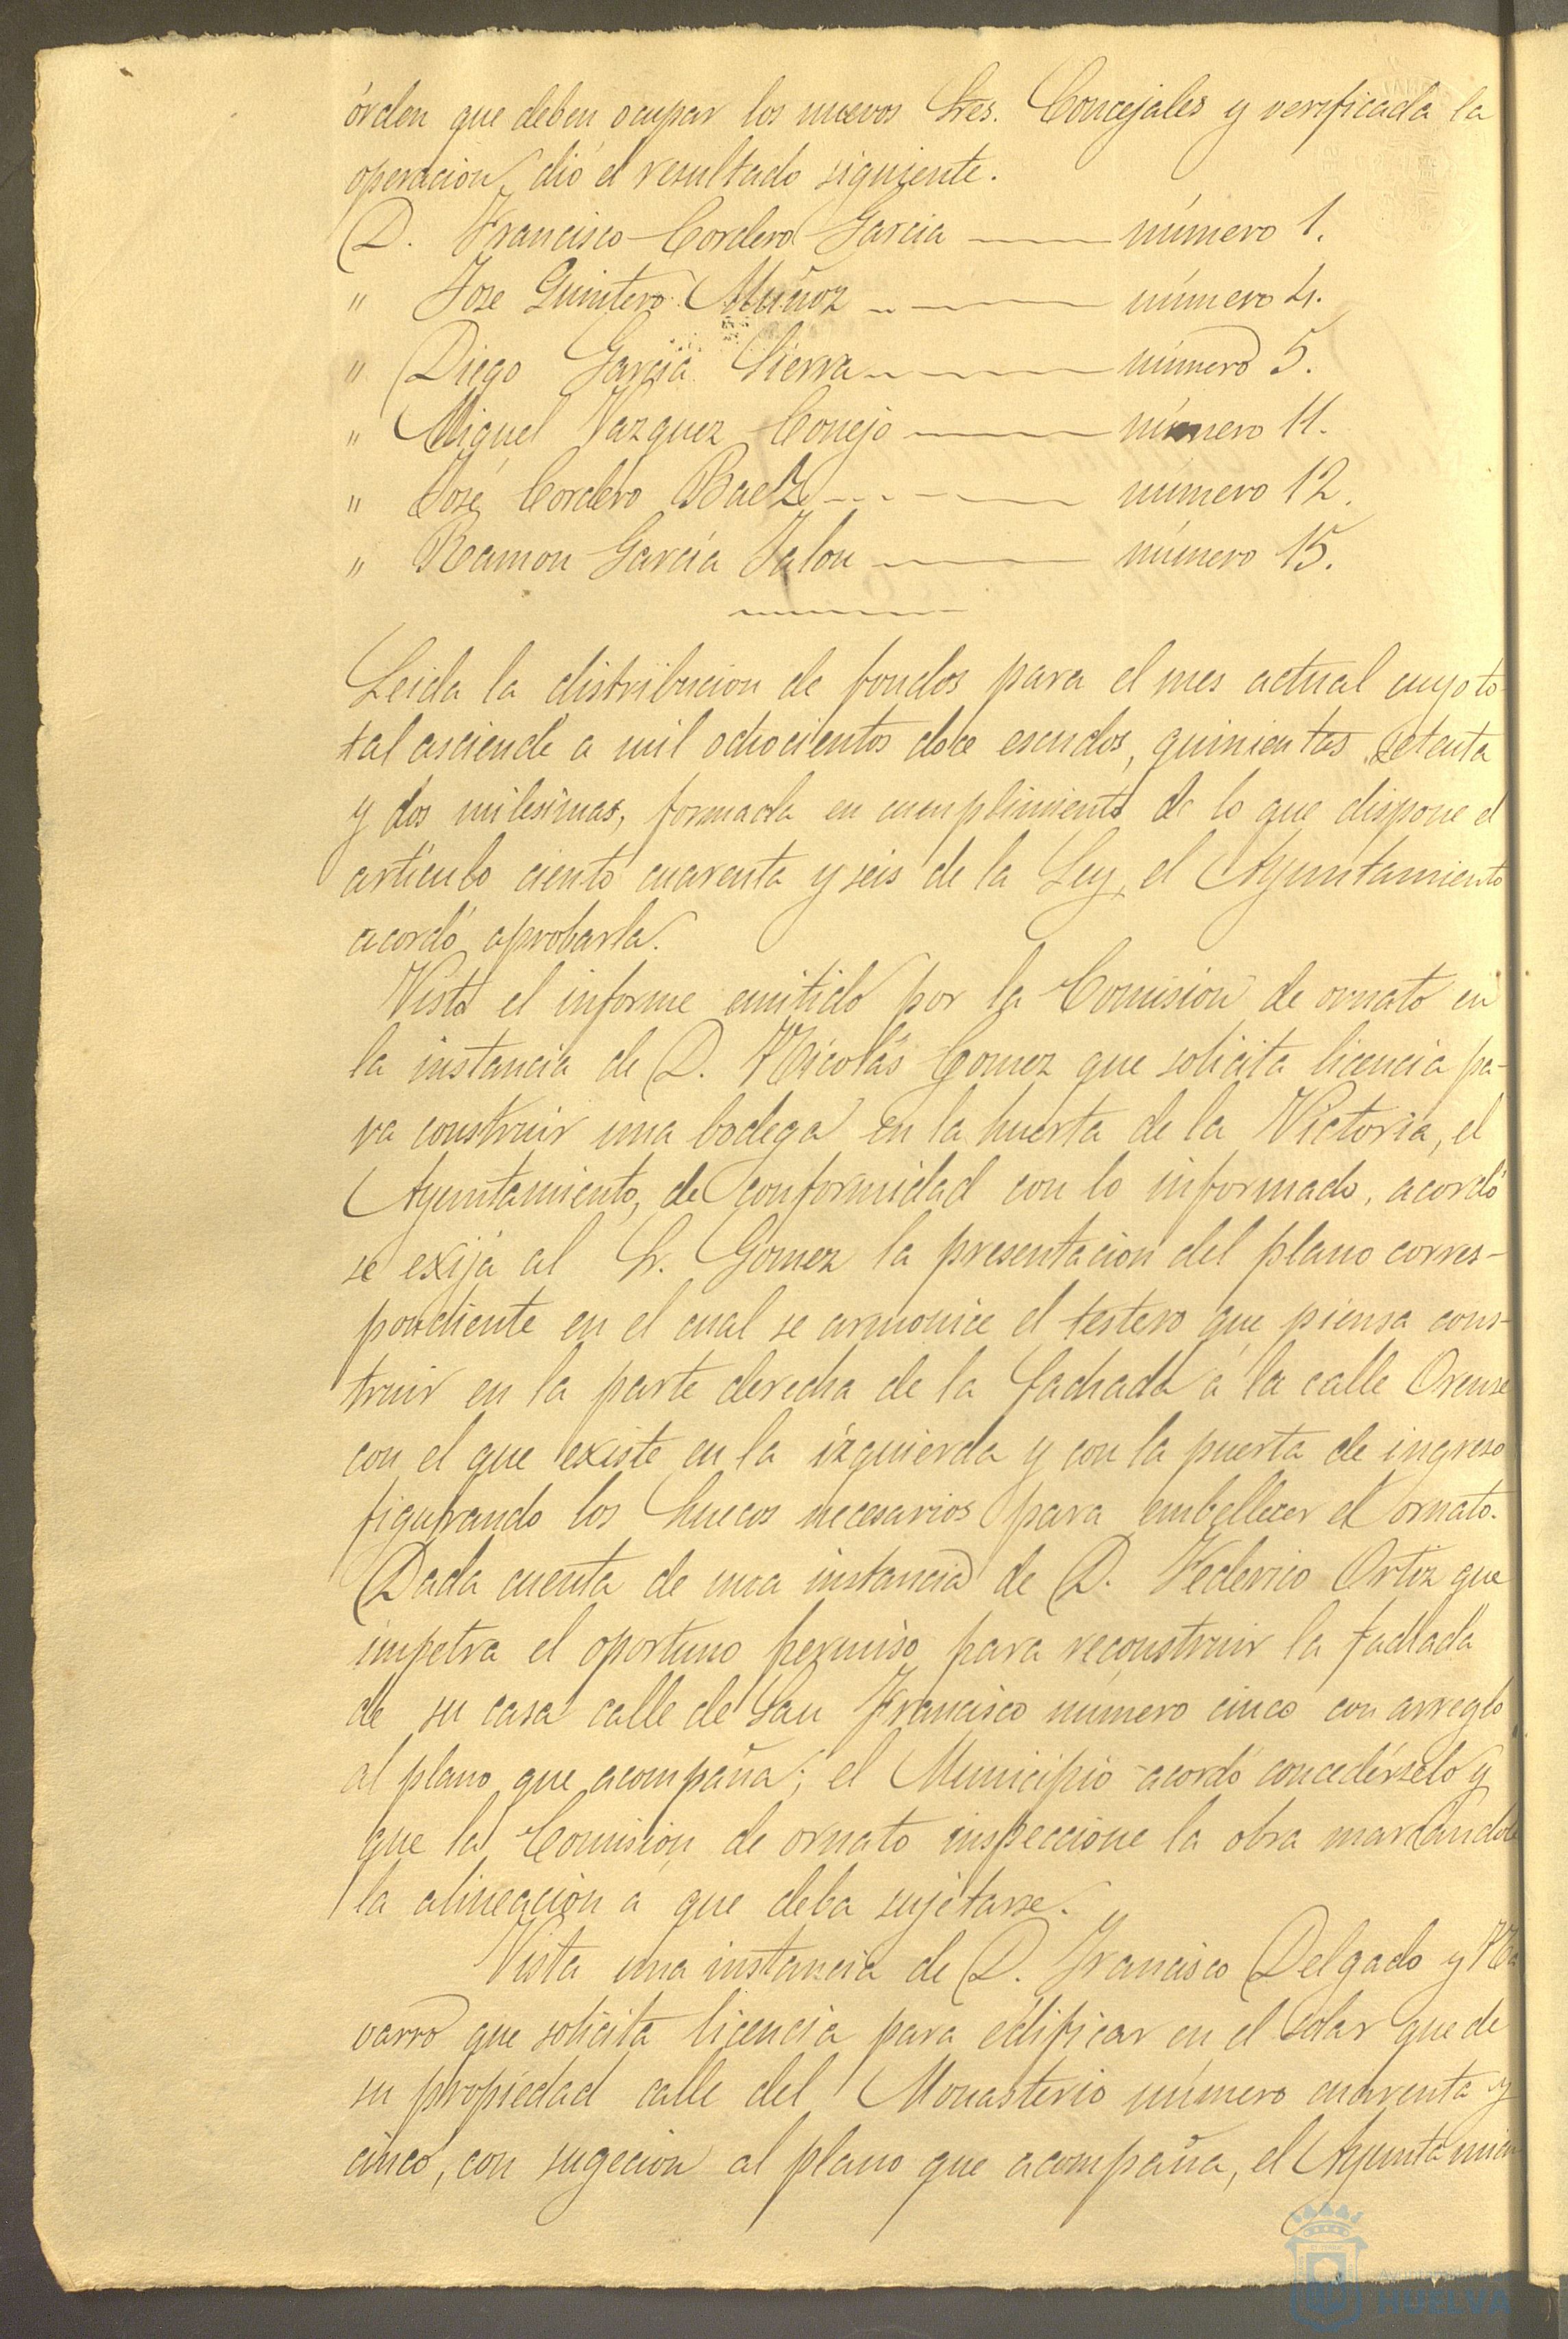 órden que deben ocupar los nuevos Sres. Concejales y verificada la
operacion, dió el resultado siguiente.
D. Francisco Cordero Garcia —— número 1.
" Jose Quintero Muñoz —— número 4.
" Diego Garcia Sierra —— número 5.
" Miguel Vazquez Conejo —— número 11.
" José Cordero Baez —— número 12.
" Ramon García Jalon —— número 15.
Leida la distribucion de fondos para el mes actual cuyo to
tal asciende a mil ochocientos doce escudos, quinientas setenta
y dos milesimas, formada en cumplimiento de lo que dispone el
artículo ciento cuarenta y seis de la Ley, el Ayuntamiento
acordó aprobarla.
Visto el informe emitido por la Comision de ornato en
la instancia de D. Nicolás Gomez que solicita licencia pa-
ra construir una bodega en la huerta de la Victoria, el
Ayuntamiento, de conformidad con lo informado, acordó
se exija al Sr. Gomez la presentacion del plano corres-
pondiente en el cual se armonice el testero que piensa cons-
truir en la parte derecha de la fachada á la calle Orense
con el que existe en la izquierda y con la puerta de ingreso
figurando los huecos necesarios para embellecer el ornato.
Dada cuenta de una instancia de D. Federico Ortiz que
impetra el oportuno permiso para reconstruir la fachada
de su casa calle de San Francisco número cinco con arreglo
al plano que acompaña; el Municipio acordó concedérselo y
que la Comisión de ornato inspeccione la obra marcándole
la alineación a que deba sujetarse.
Vista una instancia de D. Francisco Delgado y Na
varro que solicita licencia para edificar en el solar que de
su propiedad calle del Monasterio número cuarenta y
cinco, con sugecion al plano que acompaña, el Ayuntamien
HUELVA